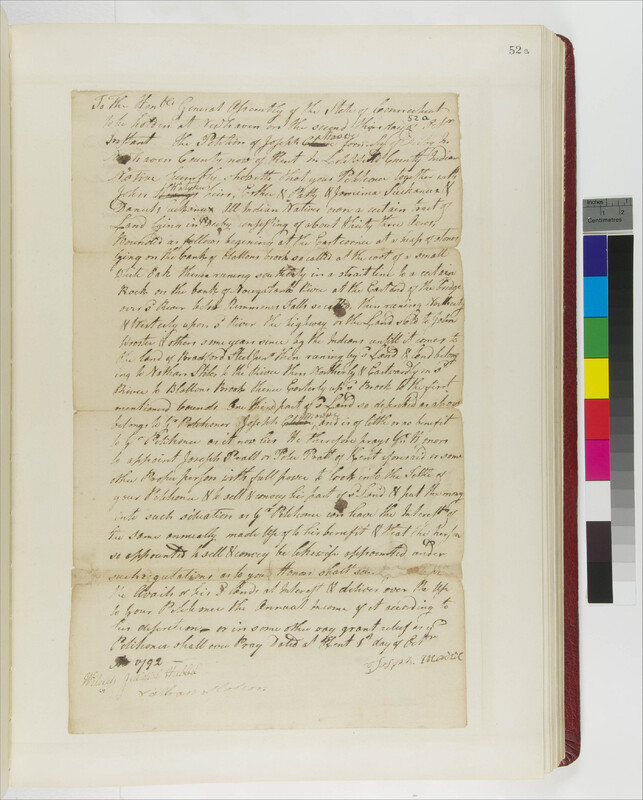 52a
To the Honble General Assembly of the State of Connecticut
to be holden at Newhaven on the second Thursday of Octobr
52a
Instant the Petition of Joseph Mawwee formerly of Derby in
Newhaven County now of Kent in Litchfield County Indian
Native Humbly sheweth that your Petitioner together with
John Lines, Esther & Patty & Jemima Suckanux &
Daniel Suckanux All Indian Natives own a certain tract of
Land lying in Derby consisting of about thirty three Acres
Bounded as follows begining at the East corner at a heap of stones
lying on the bank of Bladens Brook so called at the root of a small
White Oak thence runing southerly in a strait line to a certain
Rock on the bank of Naugatuck River at the East end of the bridge
over sd River below Rimmons Falls so called, then runing Northerly
& Westerly upon sd River the highway or the Land sold to John
Wooster & others some years since by the Indians untill it comes to
the land of Bradford Steele then runing by sd Land & Land belong
ing to Nathan Stiles to the River then Northerly & Eastwardly on sd
River to Bladens Brook thence Easterly up sd Brook to the first
mentioned bounds One third part of sd Land so described as above
belongs to yr Petitioner Joseph Mawwee, and is of little or no benefit
to yr Petitioner as it now lies He therefore prays yr Honors
to appoint Joseph Pratt or Peter Pratt of Kent aforesaid or some
other Proper person with full power to look into the Title of
your Petitioner & to sell & convey his part of sd Land & put the money
into such situation as yr Petitioner can have the Interest of
the same annually made Up to his benefit & that the person
so appointed to sell & convey be likewise appointed under
such regulations as to your Honours shall seem
the Avails of his sd Lands at Interest & deliver over the
to your Petitioner the Annual Income of it according to
his discretion or in some other way grant relief as yr
Petitioner shall ever Pray Dated at Kent 1st day of Octbr
1792
Joseph Mawwee
Witness
Nathan